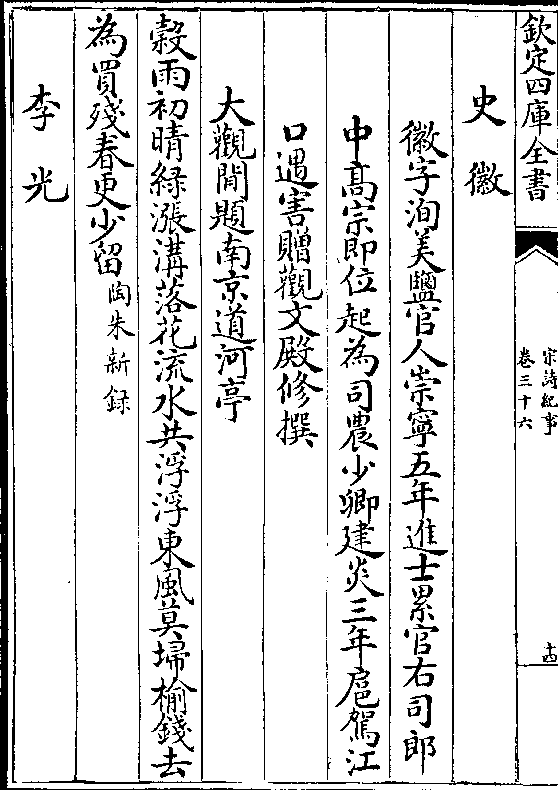 欽定四庫全書
宋詩紀事
卷三十六
十四
史徽
徽字洵美鹽官人崇寧五年進士累官右司郎
中高宗即位起為司農少卿建炎三年扈駕江
口遇害贈觀文殿修撰
大觀閒題南京道河亭
穀雨初晴綠漲溝落花流水共浮浮東風莫埽榆錢去
為買殘春更少留陶朱新録
李光